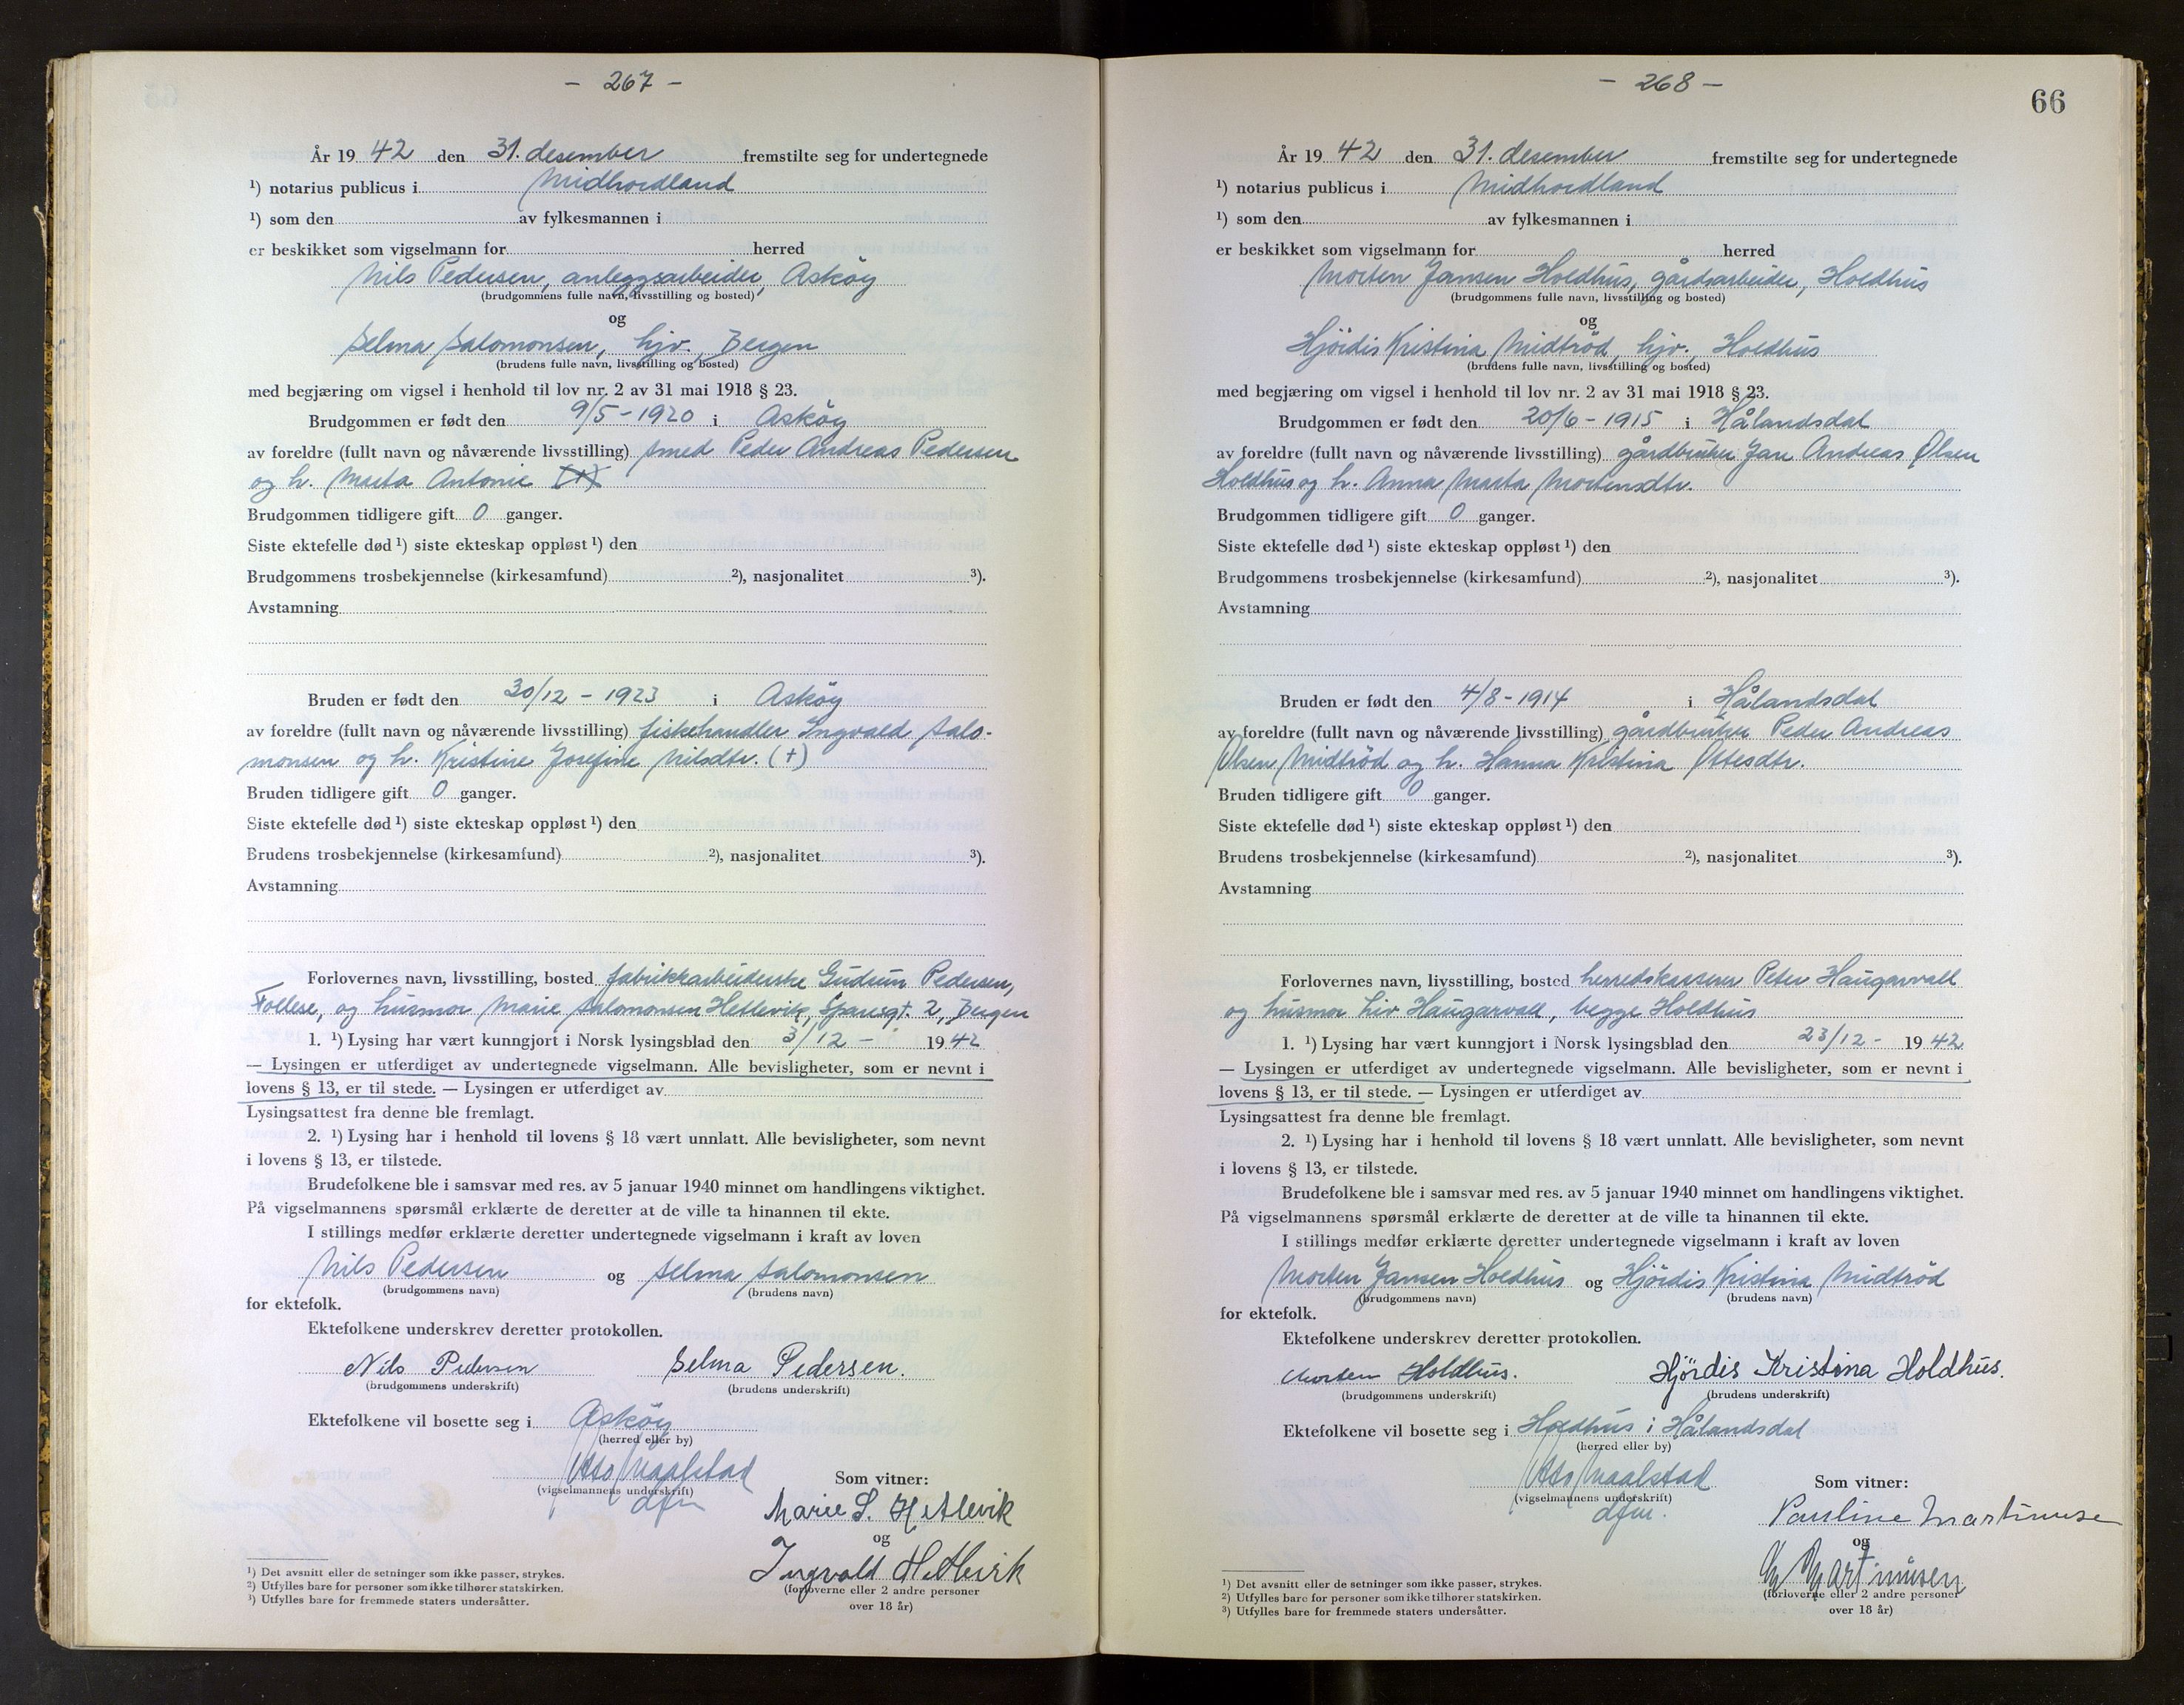 - 267 -
År 19 42 den 31. desember fremstilte seg for undertegnede
¹) notarius publicus i Midhordland
¹) som den av fylkesmannen i
er beskikket som vigselmann for herred
Nils Pedersen, anleggsarbeider, Asköy
(brudgommens fulle navn, livsstilling og bosted)
og
Selma Salomonsen, hjv., Bergen
(brudens fulle navn, livsstilling og bosted)
med begjæring om vigsel i henhold til lov nr. 2 av 31 mai 1918 § 23.
Brudgommen er født den 9/5 - 1920 i Asköy
av foreldre (fullt navn og nåværende livsstilling) smed Peder Andreas Pedersen
og h. Marta Antonie (+)
Brudgommen tidligere gift 0 ganger.
Siste ektefelle død ¹) siste ekteskap oppløst ¹) den
Brudgommens trosbekjennelse (kirkesamfund) ²), nasjonalitet ³).
Avstamning
Bruden er født den 30/12 - 1923 i Asköy
av foreldre (fullt navn og nåværende livsstilling) fiskehandler Ingvald Salo-
monsen og h. Kristine Josefine Nilsdtr. (+)
Bruden tidligere gift 0 ganger.
Siste ektefelle død ¹) siste ekteskap oppløst ¹) den
Brudens trosbekjennelse (kirkesamfund) ²), nasjonalitet ³).
Avstamning
Forlovernes navn, livsstilling, bosted fabrikkarbeiderske Gudrun Pedersen,
Follese, og husmor Marie Salomonsen Hetlevik, Sparesgt. 2, Bergen
1. ¹) Lysing har vært kunngjort i Norsk lysingsblad den 3/12 - 19 42
— Lysingen er utferdiget av undertegnede vigselmann. Alle bevisligheter, som er nevnt i
lovens § 13, er til stede. — Lysingen er utferdiget av
Lysingsattest fra denne ble fremlagt.
2. ¹) Lysing har i henhold til lovens § 18 vært unnlatt. Alle bevisligheter, som nevnt
i lovens § 13, er tilstede.
Brudefolkene ble i samsvar med res. av 5 januar 1940 minnet om handlingens viktighet.
På vigselmannens spørsmål erklærte de deretter at de ville ta hinannen til ekte.
I stillings medfør erklærte deretter undertegnede vigselmann i kraft av loven
Nils Pedersen og Selma Salomonsen
(brudgommens navn) (brudens navn)
for ektefolk.
Ektefolkene underskrev deretter protokollen.
Nils Pedersen Selma Pedersen.
(brudgommens underskrift) (brudens underskrift)
Ektefolkene vil bosette seg i Asköy
(herred eller by)
Maalstad
(vigselmannens underskrift)
dfm
Som vitner:
Marie S. Hetlevik
og
Ingvald Hetlevik
(forloverne eller 2 andre personer
over 18 år)
¹) Det avsnitt eller de setninger som ikke passer, strykes.
²) Utfylles bare for personer som ikke tilhører statskirken.
³) Utfylles bare for fremmede staters undersåtter.
- 268 -
66
År 19 42 den 31. desember fremstilte seg for undertegnede
¹) notarius publicus i Midhordland
¹) som den av fylkesmannen i
er beskikket som vigselmann for herred
Morten Jansen Holdhus, gårdsarbeider, Holdhus
(brudgommens fulle navn, livsstilling og bosted)
og
Hjördis Kristina Midtröd, hjv., Holdhus
(brudens fulle navn, livsstilling og bosted)
med begjæring om vigsel i henhold til lov nr. 2 av 31 mai 1918 § 23.
Brudgommen er født den 20/6 - 1915 i Hålandsdal
av foreldre (fullt navn og nåværende livsstilling) gårdbruker Jan Andreas Olsen
Holdhus og h. Anna Marta Mortensdtr.
Brudgommen tidligere gift 0 ganger.
Siste ektefelle død ¹) siste ekteskap oppløst ¹) den
Brudgommens trosbekjennelse (kirkesamfund) ²), nasjonalitet ³).
Avstamning
Bruden er født den 4/8 - 1914 i Hålandsdal
av foreldre (fullt navn og nåværende livsstilling) gårdbruker Peder Andreas
Olsen Midtröd og h. Hanna Kristina Ottesdtr.
Bruden tidligere gift 0 ganger.
Siste ektefelle død ¹) siste ekteskap oppløst ¹) den
Brudens trosbekjennelse (kirkesamfund) ²), nasjonalitet ³).
Avstamning
Forlovernes navn, livsstilling, bosted herredskasserer Peter Haugarvoll
og husmor Liv Haugarvoll, begge Holdhus
1. ¹) Lysing har vært kunngjort i Norsk lysingsblad den 23/12 - 19 42
— Lysingen er utferdiget av undertegnede vigselmann. Alle bevisligheter, som er nevnt i
lovens § 13, er til stede. — Lysingen er utferdiget av
Lysingsattest fra denne ble fremlagt.
2. ¹) Lysing har i henhold til lovens § 18 vært unnlatt. Alle bevisligheter, som nevnt
i lovens § 13, er tilstede.
Brudefolkene ble i samsvar med res. av 5 januar 1940 minnet om handlingens viktighet.
På vigselmannens spørsmål erklærte de deretter at de ville ta hinannen til ekte.
I stillings medfør erklærte deretter undertegnede vigselmann i kraft av loven
Morten Jansen Holdhus og Hjördis Kristina Midtröd
(brudgommens navn) (brudens navn)
for ektefolk.
Ektefolkene underskrev deretter protokollen.
Morten Holdhus. Hjördis Kristina Holdhus.
(brudgommens underskrift) (brudens underskrift)
Ektefolkene vil bosette seg i Holdhus i Hålandsdal
(herred eller by)
Maalstad
(vigselmannens underskrift)
dfm.
Som vitner:
Pauline Martinusen
og
Martinusen
(forloverne eller 2 andre personer
over 18 år)
¹) Det avsnitt eller de setninger som ikke passer, strykes.
²) Utfylles bare for personer som ikke tilhører statskirken.
³) Utfylles bare for fremmede staters undersåtter.